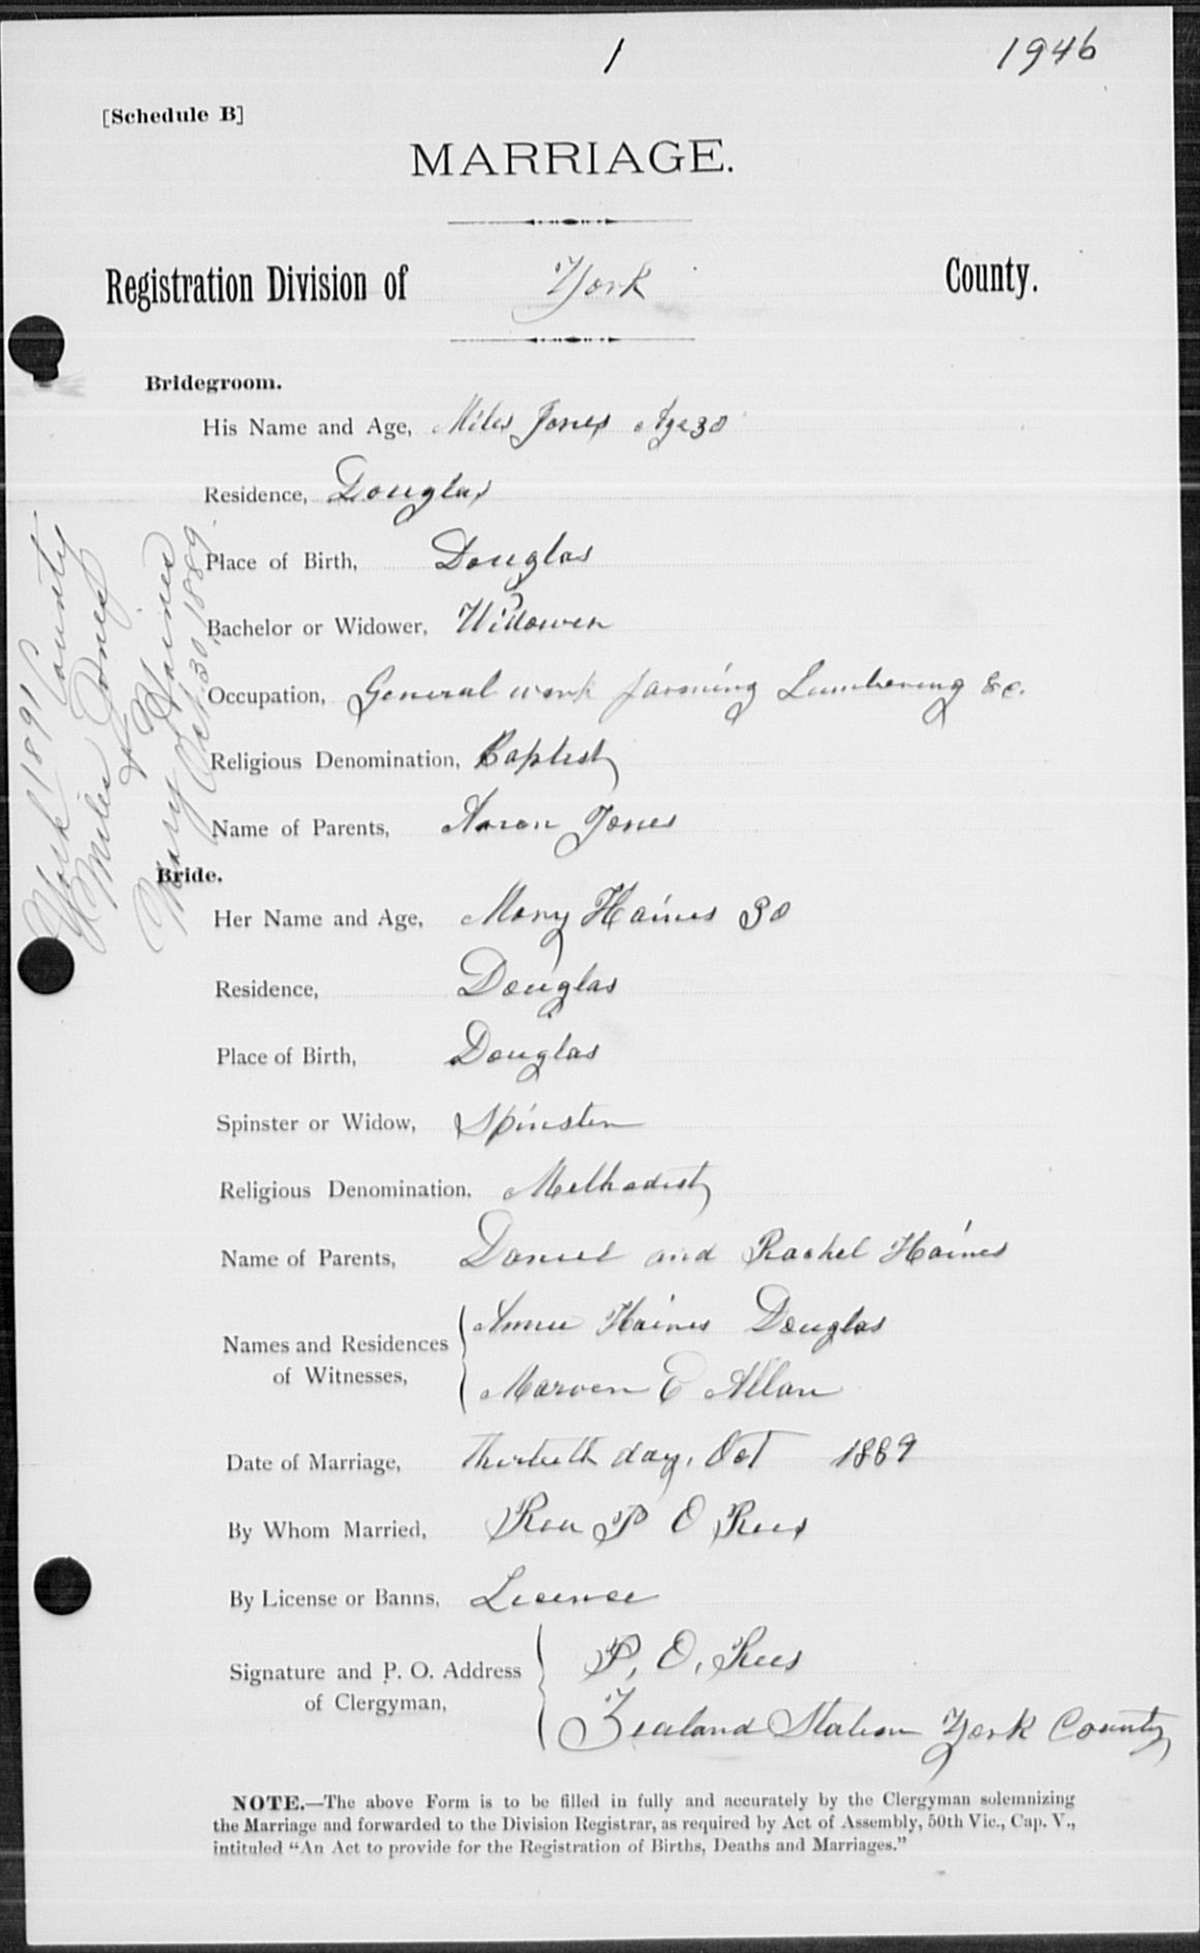 1
1946
[Schedule B]
MARRIAGE.
Registration Division of York County.
Bridegroom.
His Name and Age, Miles Jones Age 30
Residence, Douglas
Place of Birth, Douglas
Bachelor or Widower, Widower
Occupation, General work farming Lumbering &c.
Religious Denomination, Baptist
Name of Parents, Aaron Jones
Bride.
Her Name and Age, Mary Haines 30
Residence, Douglas
Place of Birth, Douglas
Spinster or Widow, Spinster
Religious Denomination, Methodist
Name of Parents, Daniel and Rachel Haines
Names and Residences of Witnesses, Annie Haines Douglas
Marven E Allan
Date of Marriage, thirtieth day, Oct 1889
By Whom Married, Rev P O Rees
By License or Banns, Licence
Signature and P. O. Address of Clergyman, P, O, Rees
Zealand Station York County
NOTE.—The above Form is to be filled in fully and accurately by the Clergyman solemnizing
the Marriage and forwarded to the Division Registrar, as required by Act of Assembly, 50th Vic., Cap. V.,
intituled "An Act to provide for the Registration of Births, Deaths and Marriages."
York 1891 County
Miles Jones
&
Mary Haines
Oct 30, 1889